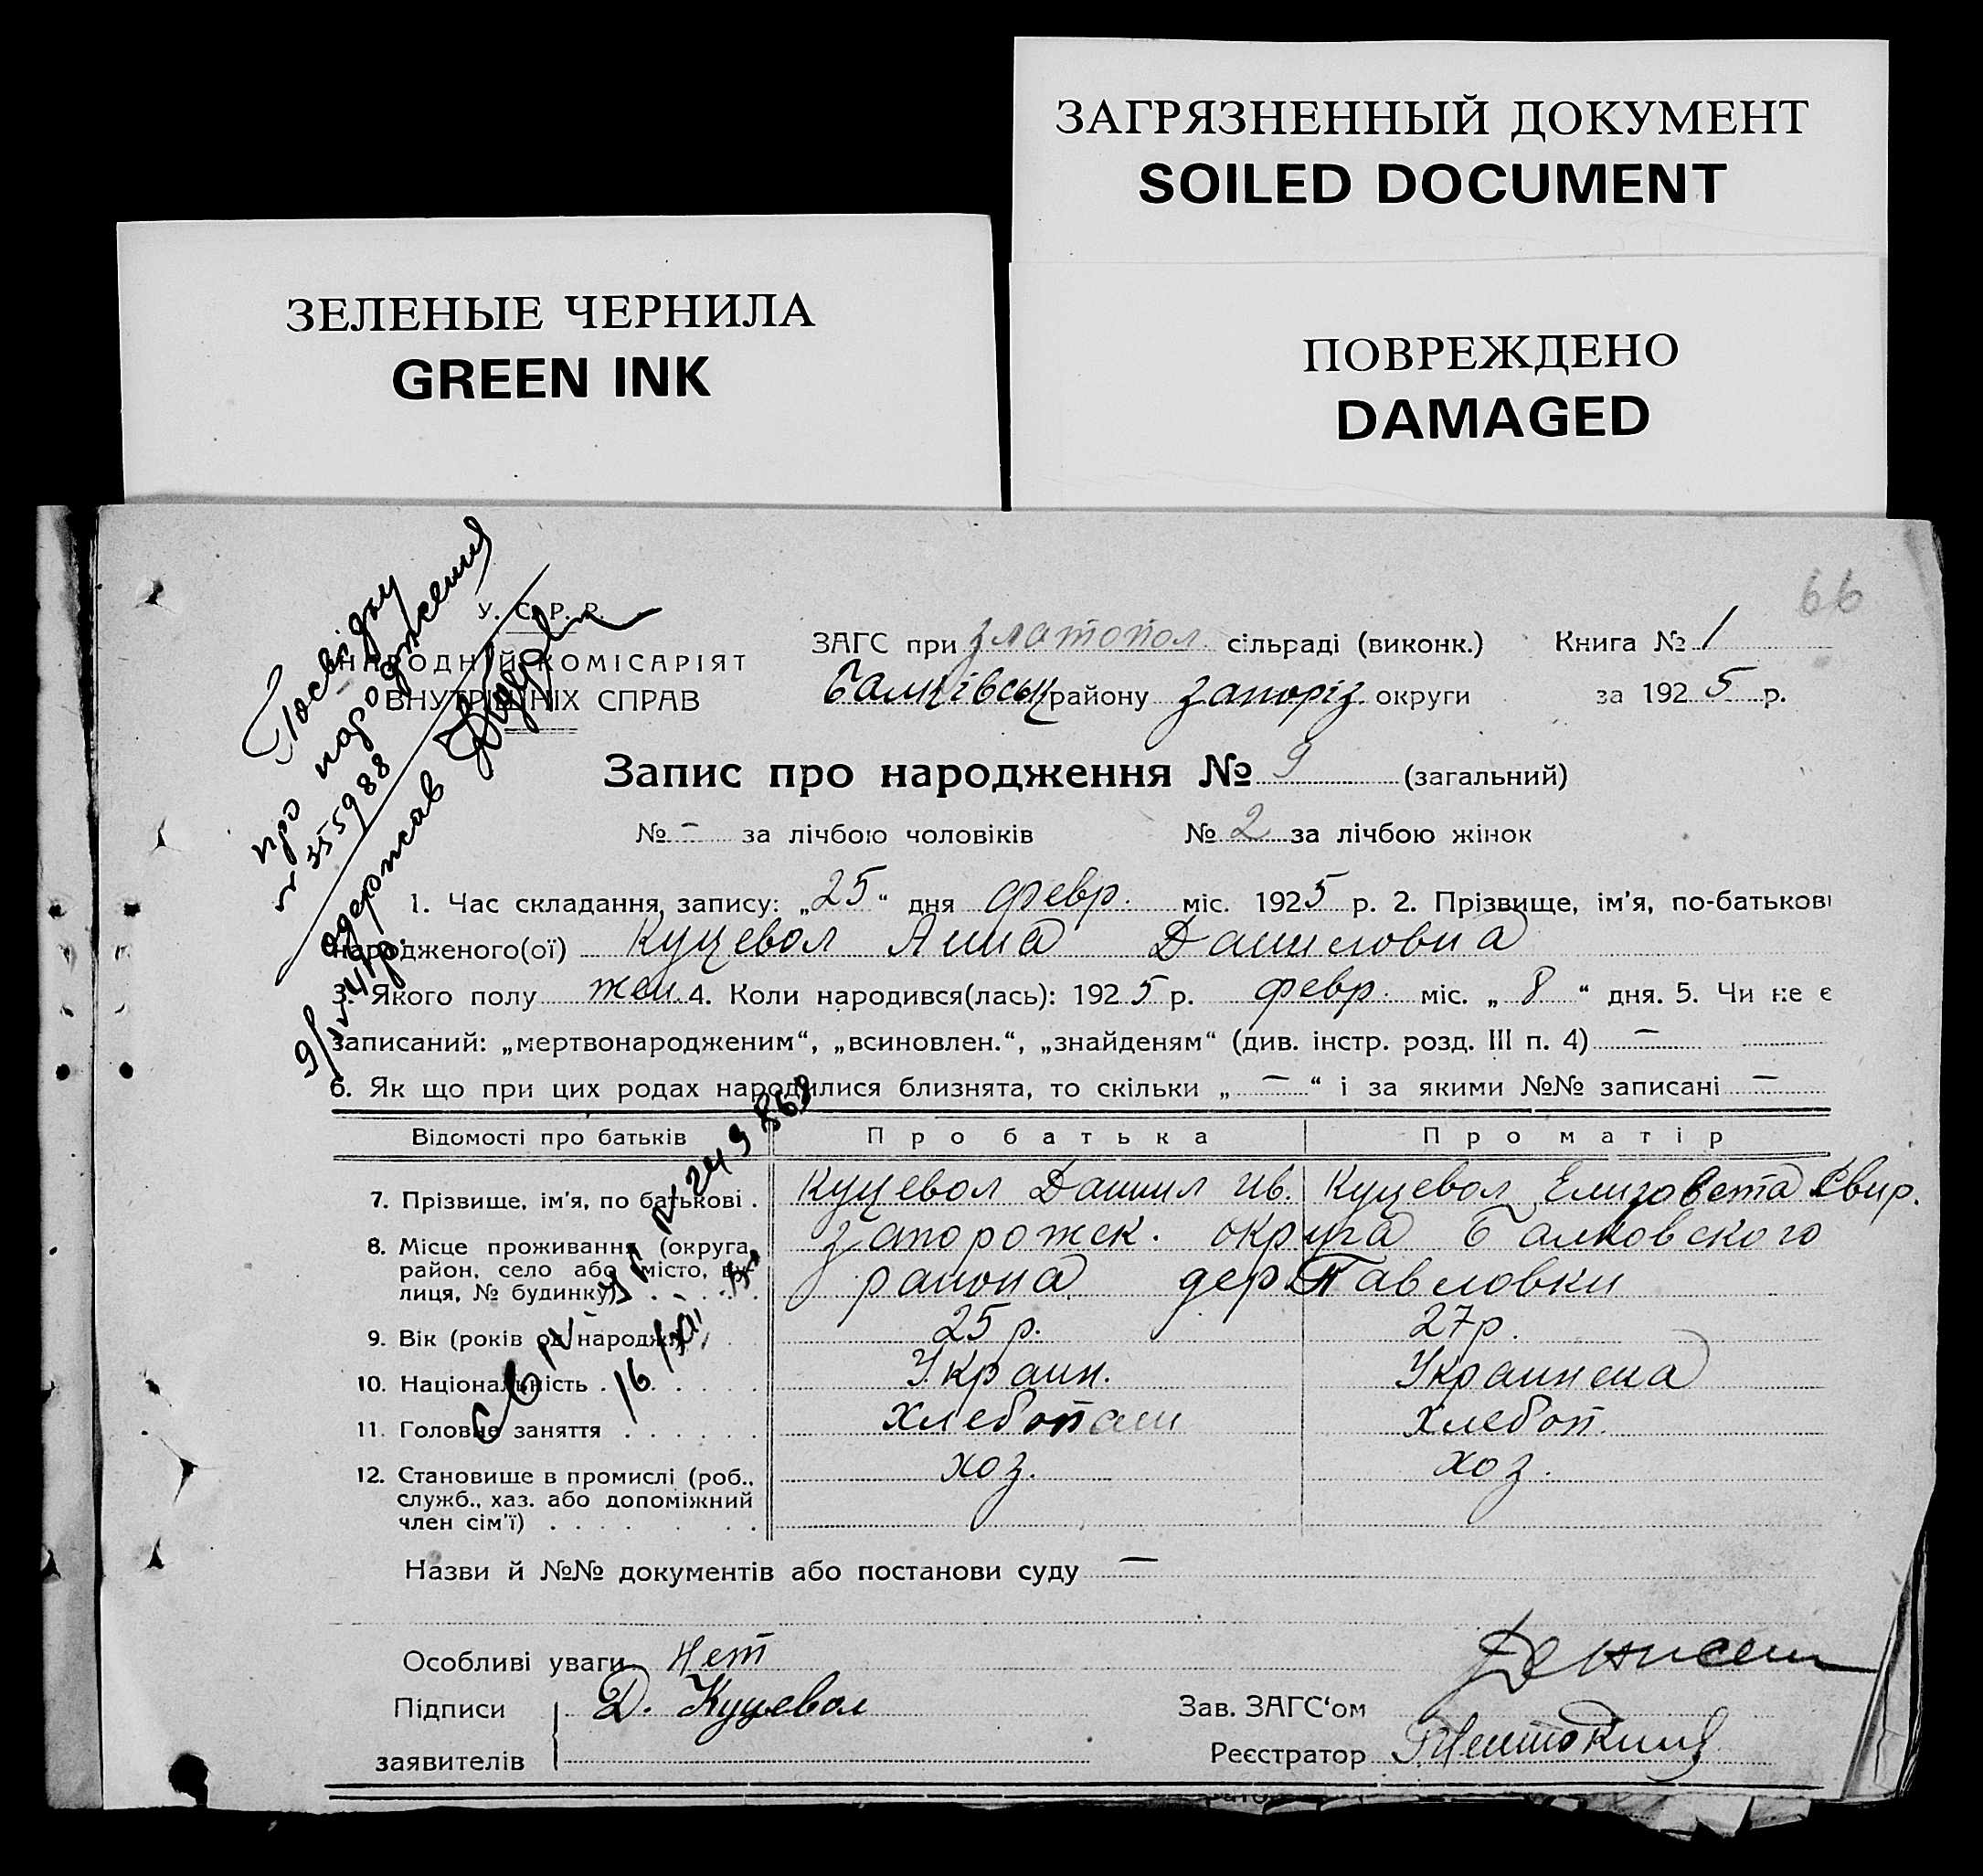 ЗАГРЯЗНЕННЫЙ ДОКУМЕНТ
SOILED DOCUMENT
ЗЕЛЕНЫЕ ЧЕРНИЛА
GREEN INK
ПОВРЕЖДЕНО
DAMAGED
66
Посвідку
про народження
№ 355988
одержав
У. С. Р. Р.
НАРОДНІЙ КОМІСАРІЯТ
ВНУТРІШНІХ СПРАВ
ЗАГС при златопол сільраді (виконк.) Книга № 1
Балківськ району запоріз. округи за 1925 р.
Запис про народження № 9 (загальний)
№ – за лічбою чоловіків № 2 за лічбою жінок
1. Час складання запису: „25“ дня февр. міс. 1925 р. 2. Прізвище, ім'я, по-батькові
народженого(ої) Куцевол Анна Даниловна
3. Якого полу жен. 4. Коли народився(лась): 1925 р. февр. міс. „8“ дня. 5. Чи не є
записаний: „мертвонародженим“, „всиновлен.“, „знайденям“ (див. інстр. розд. III п. 4) –
6. Як що при цих родах народилися близнята, то скільки „–“ і за якими №№ записані –
Відомості про батьків Про батька Про матір
7. Прізвище, ім'я, по батькові . Куцевол Даниил Ив. Куцевол Елизавета Свир.
8. Місце проживання (округа, запорожск. округа Балковского
район, село або місто, ву-
лиця, № будинку) района дер. Павловки
9. Вік (років од народж.) 25 р. 27 р.
10. Національність . . . . . . Украин. Украинка
11. Головне заняття . . . . . . Хлебопаш Хлебоп.
12. Становище в промислі (роб., хоз. хоз.
служб., хаз. або допоміжний
член сім'ї) . . . . . .
Назви й №№ документів або постанови суду –
Особливі уваги Нет
Підписи Д. Куцевол Зав. ЗАГС'ом
заявителів Реєстратор